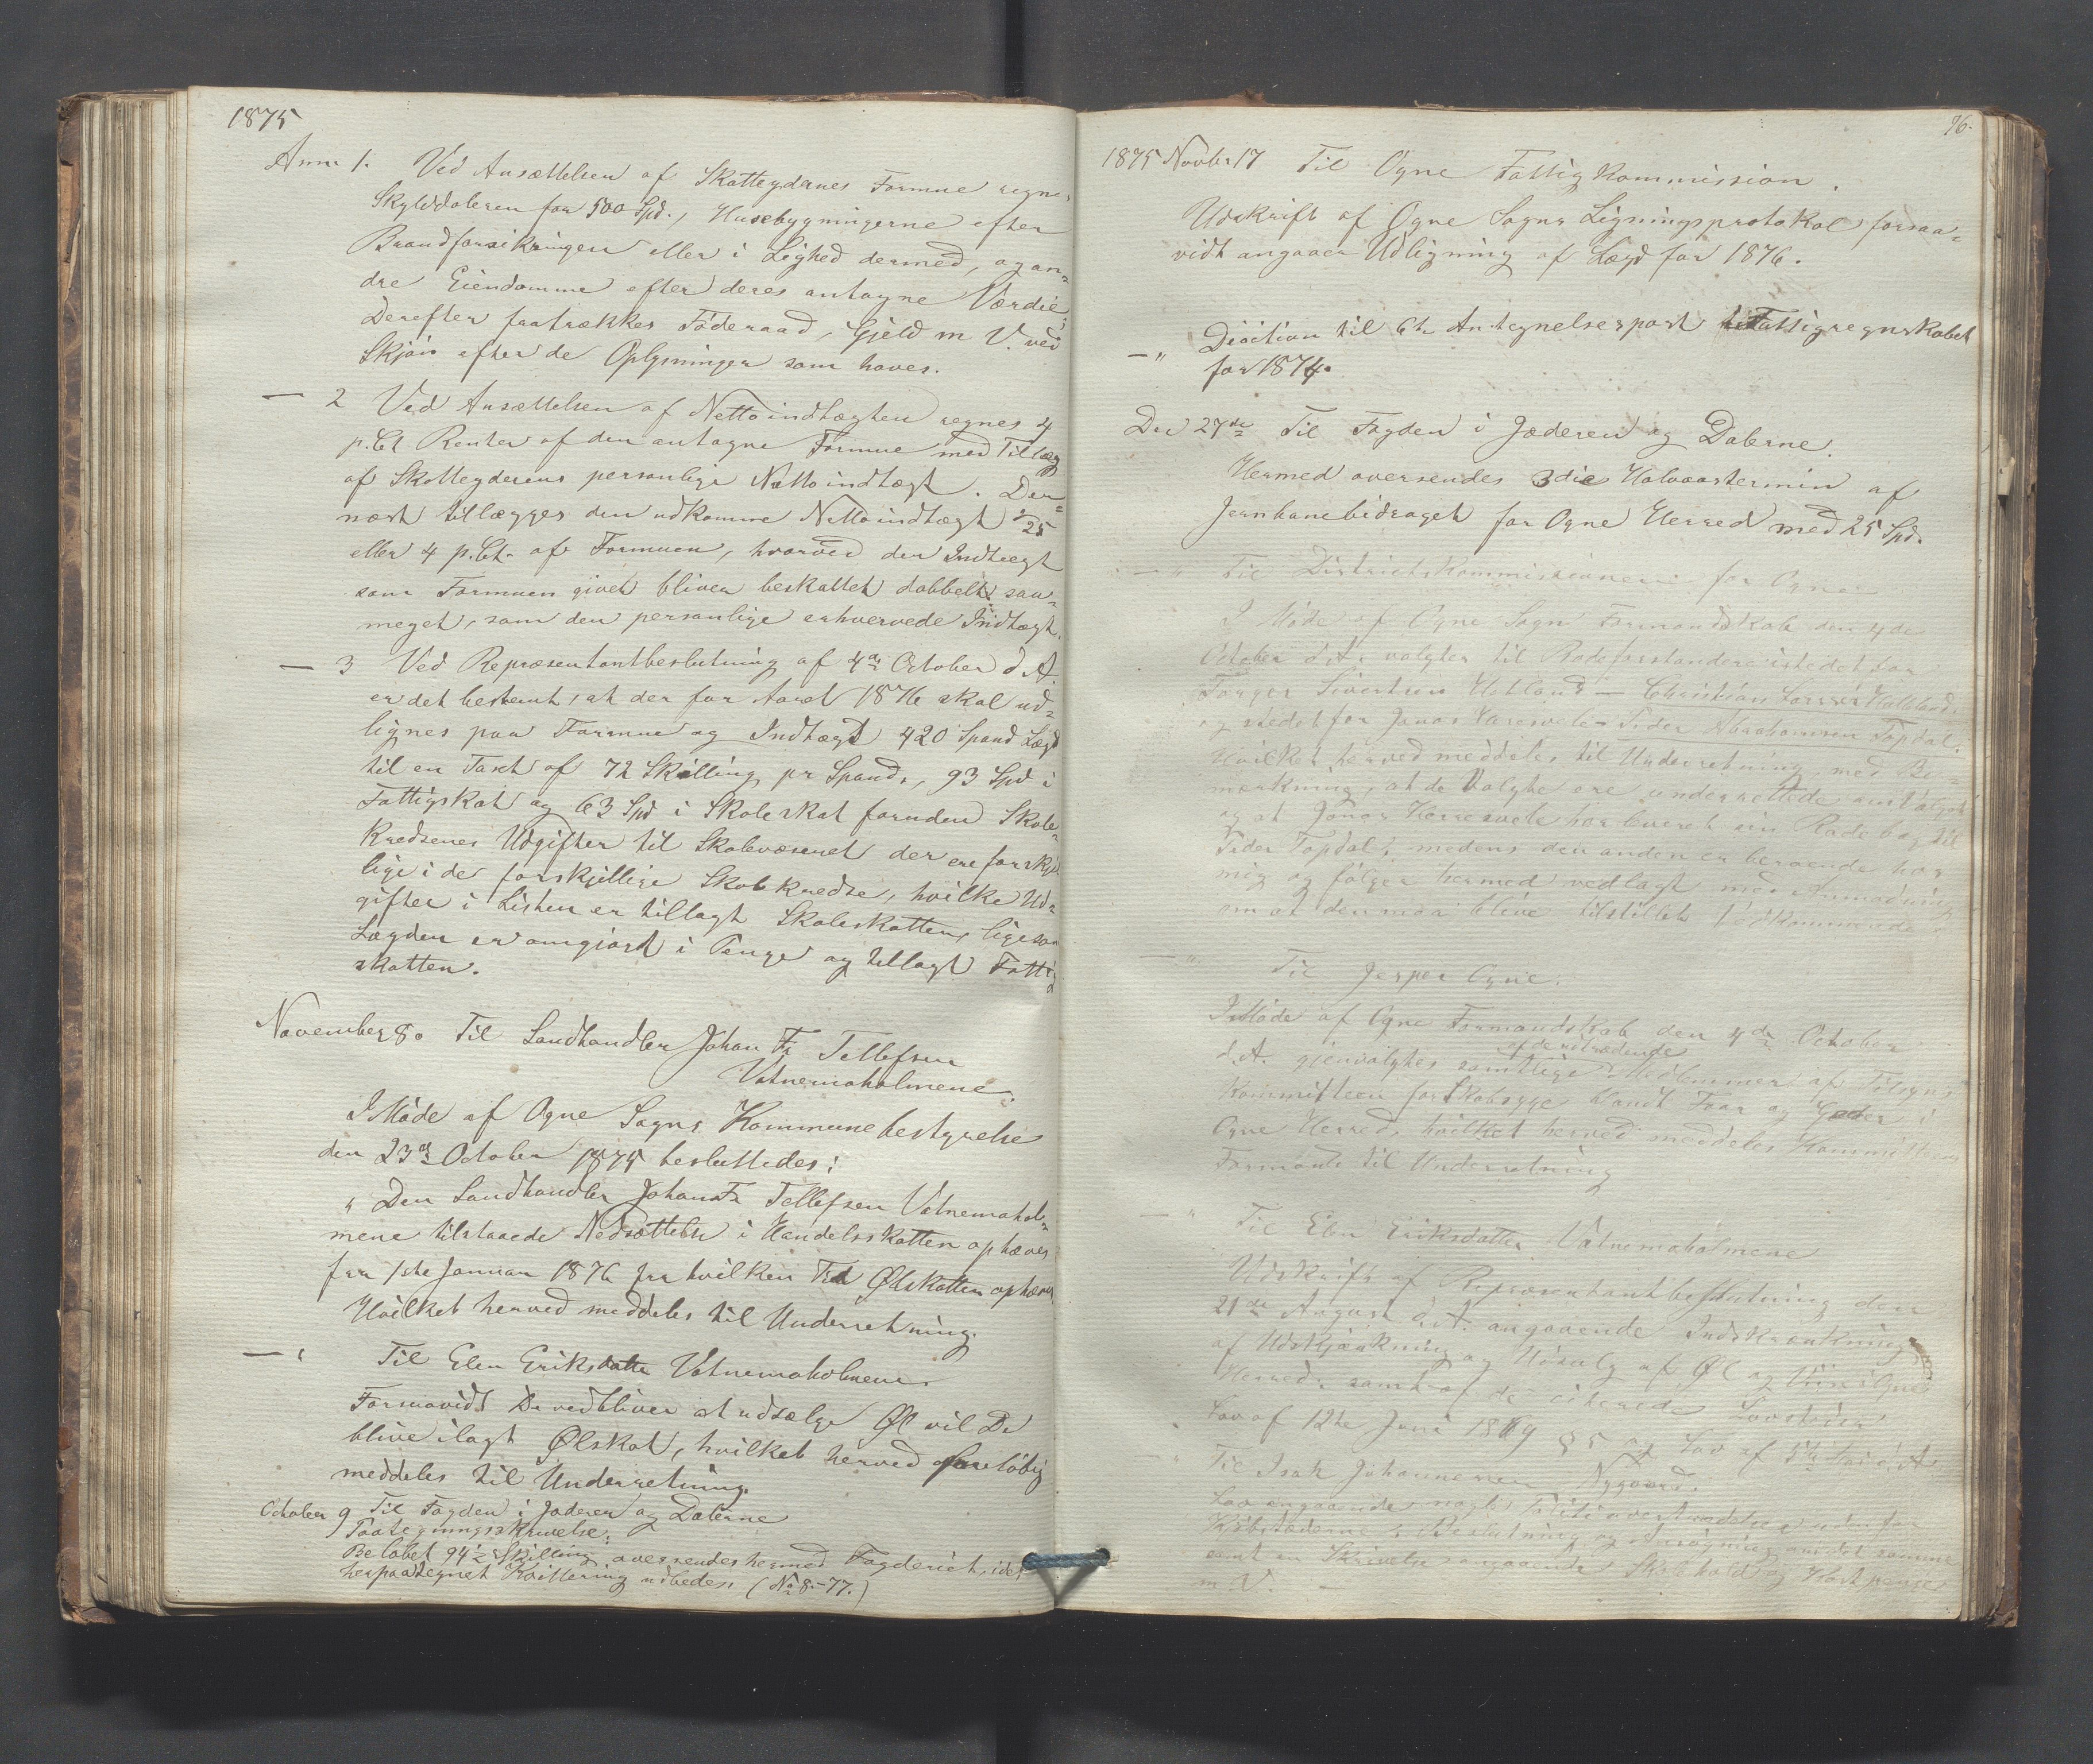 1875
Anm 1. Ved Ansættelsen af Skatteydernes Formue regnes
Skylddaleren for 500 Spd., Husebygningerne efter
Brandforsikringen eller i Lighed dermed, og an-
dre Eiendomme efter deres antagne Værdie;
Derefter fratrækkes Föderaad, Gjeld m V. ved
Skjön efter de Oplysninger som haves.
— 2 Ved Ansættelsen af Nettoindtægten regnes 4
p. Ct Renter af den antagne Formue med Tillæg
af Skatteyderens personlige Nettoindtægt. Der-
næst tillægges den udkomne Nettoindtægt 1/25
eller 4 p. Ct. af Formuen, hvorved den Indtægt
som Formuen givet bliver beskattet dobbelt saa-
meget, som den personlige erhvervede Indtægt.
— 3 Ved Repræsentantbeslutning af 4de October d. A.
er det bestemt, at der for Aaret 1876 skal ud-
lignes paa Formue og Indtægt 420 Spand Lægd
til en Taxt af 72 Skilling pr Spand, 93 Spd i
Fattigskat og 63 Spd i Skoleskat foruden Skole-
kredsenes Udgifter til Skolevæsenet der ere forskjel
lige i de forskjellige Skolekredse, hvilke Ud-
gifter i Listen er tillagt Skoleskatten, ligesom
Lægden er omgjort i Penge og tillagt Fattig
skatten.
November 8. Til Landhandler Johan Fr Tellefsen
Vatnemoholmene.
I Möde af Ogne Sogns Kommunebestyrelse
den 23de October 1875 besluttedes:
" Den Landhandler Johan Fr Tellefsen Vatnemohol-
mene tilstaaede Nedsættelse i Handelsskatten ophæves
fra 1ste Januar 1876 fra hvilken Tid Ølskatten ophæves
Hvilket herved meddeles til Underretning.
— " Til Elen Eriksdatter Vatnemoholmene.
Forsaavidt De vedbliver at udsælge Øl vil De
blive ilagt Ølskat, hvilket herved foreløbig
meddeles til Underretning.
October 9 Til Fogden i Jæderen og Dalerne
Paategningsskrivelse.
Belöbet 94½ Skilling oversendes hermed Fogderiet, idet
herpaategnet Kvittering udbedes (No 8-77.)
76.
1875 Novbr 17 Til Ogne Fattigkommission.
Udskrift af Ogne Sogns Ligningsprotokol forsaa-
vidt angaaer Udligning af Lægd for 1876.
— " Desition til 6te Antegnelsespost til Fattigregnskabet
for 1874.
Den 27de Til Fogden i Jæderen og Dalerne.
Hermed oversendes 3die Halvaarstermin af
Jernbanebidraget for Ogne Herred med 25 Spd.
— " Til Districtskommissionen for Ogne
I Möde af Ogne Sogn Formandskab den 4de
October d. A. valgtes til Rodeforstandere istedet for
Torger Sivertsen Hetland — Christian Larsen Hetland,
og istedet for Jonas Varesvele — Peder Abrahamsen Topdal.
Hvilket herved meddeles til Underretning, med Be-
mærkning, at de Valgte ere underrettede om Valget
og at Jonas Varresvele har leveret sin Rodebog til
Peder Topdal, medens den anden er beroende hos
mig og fölger hermed vedlagt med Anmodning
om at den maa blive tilstillet Vedkommende.
— " Til Jesper Ogne.
I Möde af Ogne Formandskab den 4de October
d. A. gjenvalgtes samtlige af de udtrædende Medlemmer af Tilsyns
Kommitteen for Skabsyge blandt Faar og Geder i
Ogne Herred, hvilket herved meddeles Kommitteens
Formand til Underretning
— " Til Elen Eriksdatter Vatnemoholmene
Udskrift af Repræsentantbeslutning den
21de August d. A. angaaende Indskrænkning
af Udskjænkning og Udsalg af Øl og Viin i Ogne
Herred, samt af de citerede Lovsteder
Lov af 12te Juni 1869 § 5 og Lov af 5te Mai d. A.
" Til Isak Johannesen Nygaard.
Lov angaaende nogle Politiovertrædelser udenfor
Kjöbstæderne, Beslutning og Ansögning om det samme
samt en Skrivelse angaaende Skolehold og Kostpenge
m V. —